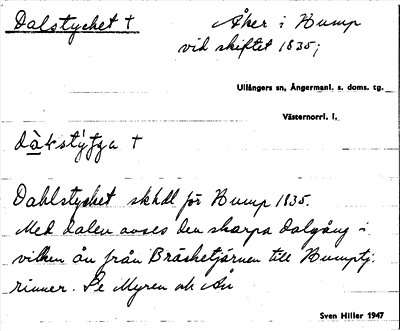 Dalstycket †
Åker i Bump
vid skiftet 1835;
Ullångers sn, Ångermanl. s. doms. tg.
Västernorrl. l.
†
Dahlstycket skhdl för Bump 1835.
Med dalen avses den skarpa dalgång i
vilken ån från Bräcketjärnen till Bumptj.
rinner. Se Myren och Ån
Sven Hiller 1947